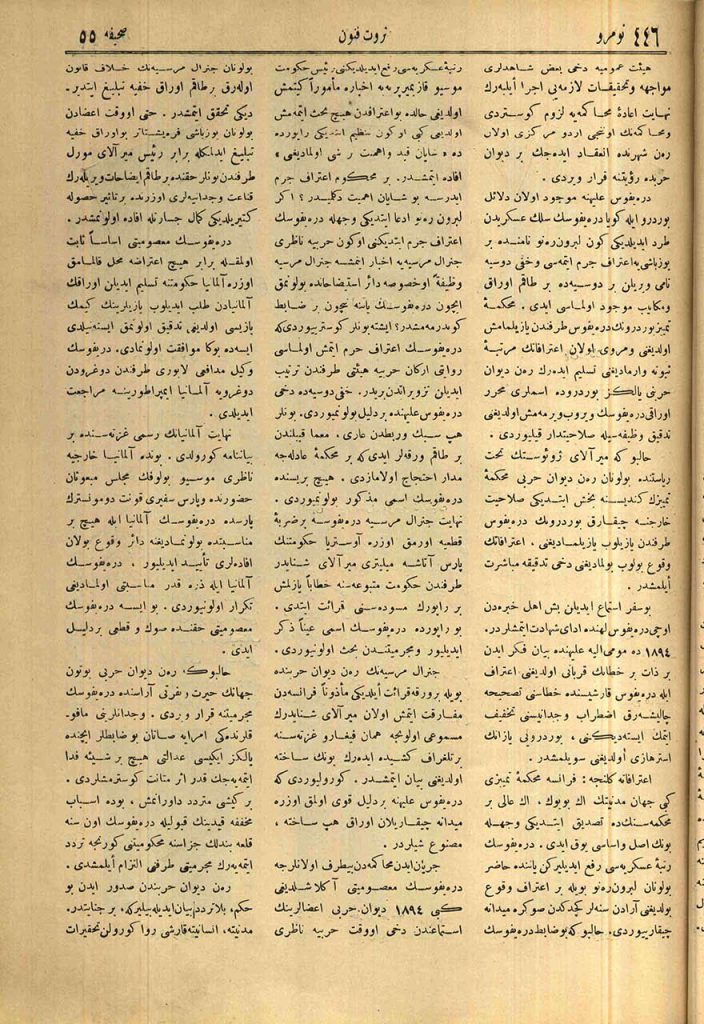 ٤٤٦ نومرو
ثروت فنون
صحیفه ٥٥
هیئت عمومیه دخی بعض شاهدلری
مواجهه وتحقیقات لازمه‌یی اجرا ایلیه‌رك
نهایت اعادهٔ محاكمه‌یه لزوم كوستردی
ومحاكمه‌نك اونجی اردو مركزی اولان
ره‌ن شهرنده انعقاد ایده‌جك بر دیوان
حربده رؤیتنه قرار ویردی .
دره‌یفوس علیهنه موجود اولان دلائل
بوردرو ایله كویا دره‌یفوسك سلك عسكریدن
طرد ایدلدیكی كون لبرون‌ره‌نو نامنده بر
یوزباشی‌یه اعتراف جرم ایتمه‌سی وخفی دوسیه
نامی ویریلن بر دوسیه‌ده بر طاقم اوراق
ومكاتیب موجود اولماسی ایدی . محكمهٔ
تمییز بوردرونك دره‌یفوس طرفندن یازیلمامش
اولدیغنی ومروی اولان اعترافاتك مرتبهٔ
ثبوته وارمادیغنی تسلیم ایده‌رك ره‌ن دیوان
حربنی یالكز بوردروده اسملری محرر
اوراقی دره‌یفوسك ویروب ویرمه‌مش اولدیغنی
تدقیق وظیفه‌سیله صلاحیتدار قیلیوردی .
حالبوكه میرآلای ژوئوستك تحت
ریاستنده بولونان ره‌ن دیوان حربی محكمهٔ
تمییزك كندیسنه بخش ایتدیكی صلاحیت
خارجنه چیقارق بوردرونك دره‌یفوس
طرفندن یازیلوب یازیلمادیغنی ، اعترافاتك
وقوع بولوب بولمادیغنی دخی تدقیقه مباشرت
ایلمشدر .
بو سفر استماع ایدیلن بش اهل خبره‌دن
اوچی دره‌یفوس لهنده ادای شهادت ایتمشلردر.
١٨٩٤ ده مومی‌الیه علیهنده بیان فكر ایدن
بر ذات بر خطانك قربانی اولدیغنی اعتراف
ایله دره‌یفوس قارشیسنده خطاسنی تصحیحه
چالیشه‌رق اضطراب وجدانیسنی تخفیف
ایتمك ایسته‌دیكنی ، بوردرویی یازانك
استرهازی اولدیغنی سویلمشدر .
اعترافاته كلنجه : فرانسه محكمهٔ تمییزی
كبی جهان مدنیتك اك بویوك ، اك عالی بر
محكمه‌سنك‌ده تصدیق ایتدیكی وجهله
بونك اصل واساسی یوق ایدی . دره‌یفوسك
رتبهٔ عسكریه‌سی رفع ایدیلیركن یاننده حاضر
بولونان لبرون‌ره‌نو بویله بر اعتراف وقوع
بولدیغنی آرادن سنه‌لر كچدكدن صوكره میدانه
چیقارییوردی. حالبوكه بو ضابط دره‌یفوسك
رتبهٔ عسكریه‌سی رفع ایدیلدیكنی رئیس حكومت
موسیو قازیمیر پریه‌یه اخباره مأموراً كیتمش
اولدیغی حالده بو اعترافدن هیچ بحث ایتمه‌مش
اولدیغی كبی او كون تنظیم ایتدیكی راپورده
ده « شایان قید واهمیت بر شی اولمادیغنی »
افاده ایتمشدر. بر محكوم اعتراف جرم
ایدرسه بو شایان اهمیت دكلمیدر ؟ اكر
لبرون ره‌نو ادعا ایتدیكی وجهله دره‌یفوسك
اعتراف جرم ایتدیكنی او كون حربیه ناظری
جنرال مرسیه‌یه اخبار ایتمشسه جنرال مرسیه
وظیفةً او خصوصه دائر استیضاحاتده بولونمق
ایچون دره‌یفوسك یاننه نیچون بر ضابط
كوندرمه‌مشدر؟ ایشته بونلر كوسترییوردی كه
دره‌یفوسك اعتراف جرم ایتمش اولماسی
روایتی اركان حربیه هیئتی طرفندن ترتیب
ایدیلن تزویراتدن بریدر. خفی دوسیه‌ده دخی
دره‌یفوس علیهنده بر دلیل بولونمیوردی. بونلر
هپ سبك وربطدن عاری ، معما قبیلندن
بر طاقم ورقه‌لر ایدی كه بر محكمهٔ عادله‌جه
مدار احتجاج اولامازدی . هیچ بریسنده
دره‌یفوسك اسمی مذكور بولونمیوردی .
نهایت جنرال مرسیه دره‌یفوسه بر ضربهٔ
قطعیه اورمق اوزره آوستریا حكومتنك
پارس آتاشه میلیتری میرآلای شنایدر
طرفندن حكومت متبوعه‌سنه خطاباً یازلمش
بر راپورك مسوده‌سنی قرائت ایتدی .
بو راپورده دره‌یفوسك اسمی عیناً ذكر
ایدیلیور ومجرمیتندن بحث اولونیوردی .
جنرال مرسیه‌نك ره‌ن دیوان حربنده
بویله بر ورقه قرائت أیلدیكی مأذوناً فرانسه‌دن
مفارقت ایتمش اولان میرآلای شنایدرك
مسموعی اولنجه همان فیغارو غزته‌سنه
بر تلغراف كشیده ایده‌رك بونك ساخته
اولدیغنی بیان ایتمشدر . كورولیوردی كه
دره‌یفوس علیهنه بر دلیل قوی اولمق اوزره
میدانه چیقاریلان اوراق هپ ساخته ،
مصنوع شیلردر .
جریان ایدن محاكمه‌دن بیطرف اولانلرجه
دره‌یفوسك معصومیتی آكلاشلدیغی
كبی ١٨٩٤ دیوان حربی اعضالرینك
استماعندن دخی اووقت حربیه ناظری
بولونان جنرال مرسیه‌نك خلاف قانون
اوله‌رق بر طاقم اوراق خفیه تبلیغ ایتدیر-
دیكی تحقق ایتمشدر . حتی اووقت اعضادن
بولونان یوزباشی فره‌یشتاتر بو اوراق خفیه
تبلیغ ایدلمكله برابر رئیس میرآلای مورل
طرفندن بونلر حقنده بر طاقم ایضاحات ویریله‌رك
قناعت وجدانیه‌لری اوزرنده بر تاثیر حصوله
كتیریلدیكنی كمال جسارتله افاده اولونمشدر.
دره‌یفوسك معصومیتی اساساً ثابت
اولمقله برابر هیچ اعتراضه محل قالمامق
اوزره آلمانیا حكومتنه تسلیم ایدیلن اوراقك
آلمانیادن طلب ایدیلوب یازیلرینك كیمك
یازیسی اولدیغنی تدقیق اولونمق ایسته‌نیلدی
ایسه‌ده بوكا موافقت اولونمادی. دره‌یفوسك
وكیل مدافعی لابوری طرفندن دوغرودن
دوغرویه آلمانیا ایمپراطورینه مراجعت
ایدیلدی .
نهایت آلمانیانك رسمی غزته‌سنده بر
بیاننامه كورولدی . بونده آلمانیا خارجیه
ناظری موسیو بولوفك مجلس مبعوثان
حضورنده وپارس سفیری قونت دومونسترك
پارسده دره‌یفوسك آلمانیا ایله هیچ بر
مناسبتده بولونمادیغنه دائر وقوع بولان
افاده‌لری تأیید ایدیلیور ، دره‌یفوسك
آلمانیا ایله ذره قدر مناسبتی اولمادیغی
تكرار اولونیوردی . بو ایسه دره‌یفوسك
معصومیتی حقنده صوك و قطعی بر دلیل
ایدی .
حالبوكه، ره‌ن دیوان حربی بوتون
جهانك حیرت ونفرتی آراسنده دره‌یفوسك
مجرمیتنه قرار ویردی . وجدانلرینی مافو-
قلرنده‌كی امرایه صاتان بو ضابطلر ایچنده
یالكز ایكیسی عدالتی هیچ بر شیئه فدا
ایتمه‌یه‌جك قدر اثر متانت كوسترمشلردی .
بر كیشی متردد داورانمش ، بوده اسباب
مخففه قیدینك قبولیله دره‌یفوسك اون سنه
قلعه بندلك جزاسنه محكومیتنی كورنجه تردد
ایتمه‌یه‌رك مجرمیتی طرفنی التزام أیلمشدی.
ره‌ن دیوان حربندن صدور ایدن بو
حكم، بلاتردد بیان ایدیله‌بیلیركه، بر جنایتدر.
مدنیته، انسانیته قارشی روا كورولن تحقیرات